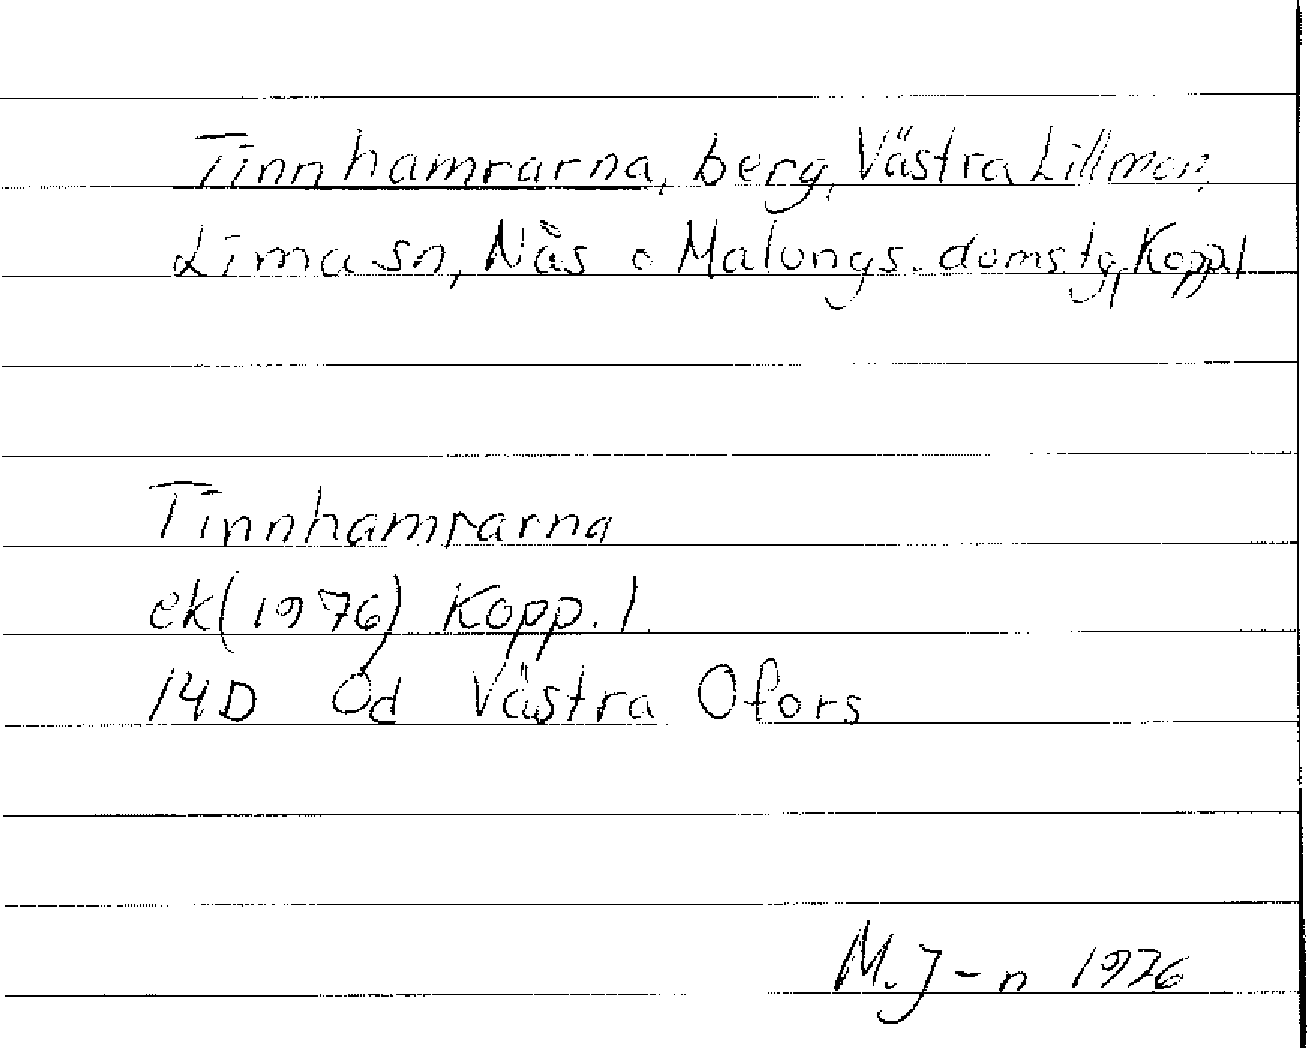 Tinnhamrarna, berg, Västra Lillmon,
Lima sn, Nås o Malungs domstg, Kopp.l
Tinnhamrarna
ek(1976) Kopp. l.
14D Od Västra Ofors
M. J-n 1976